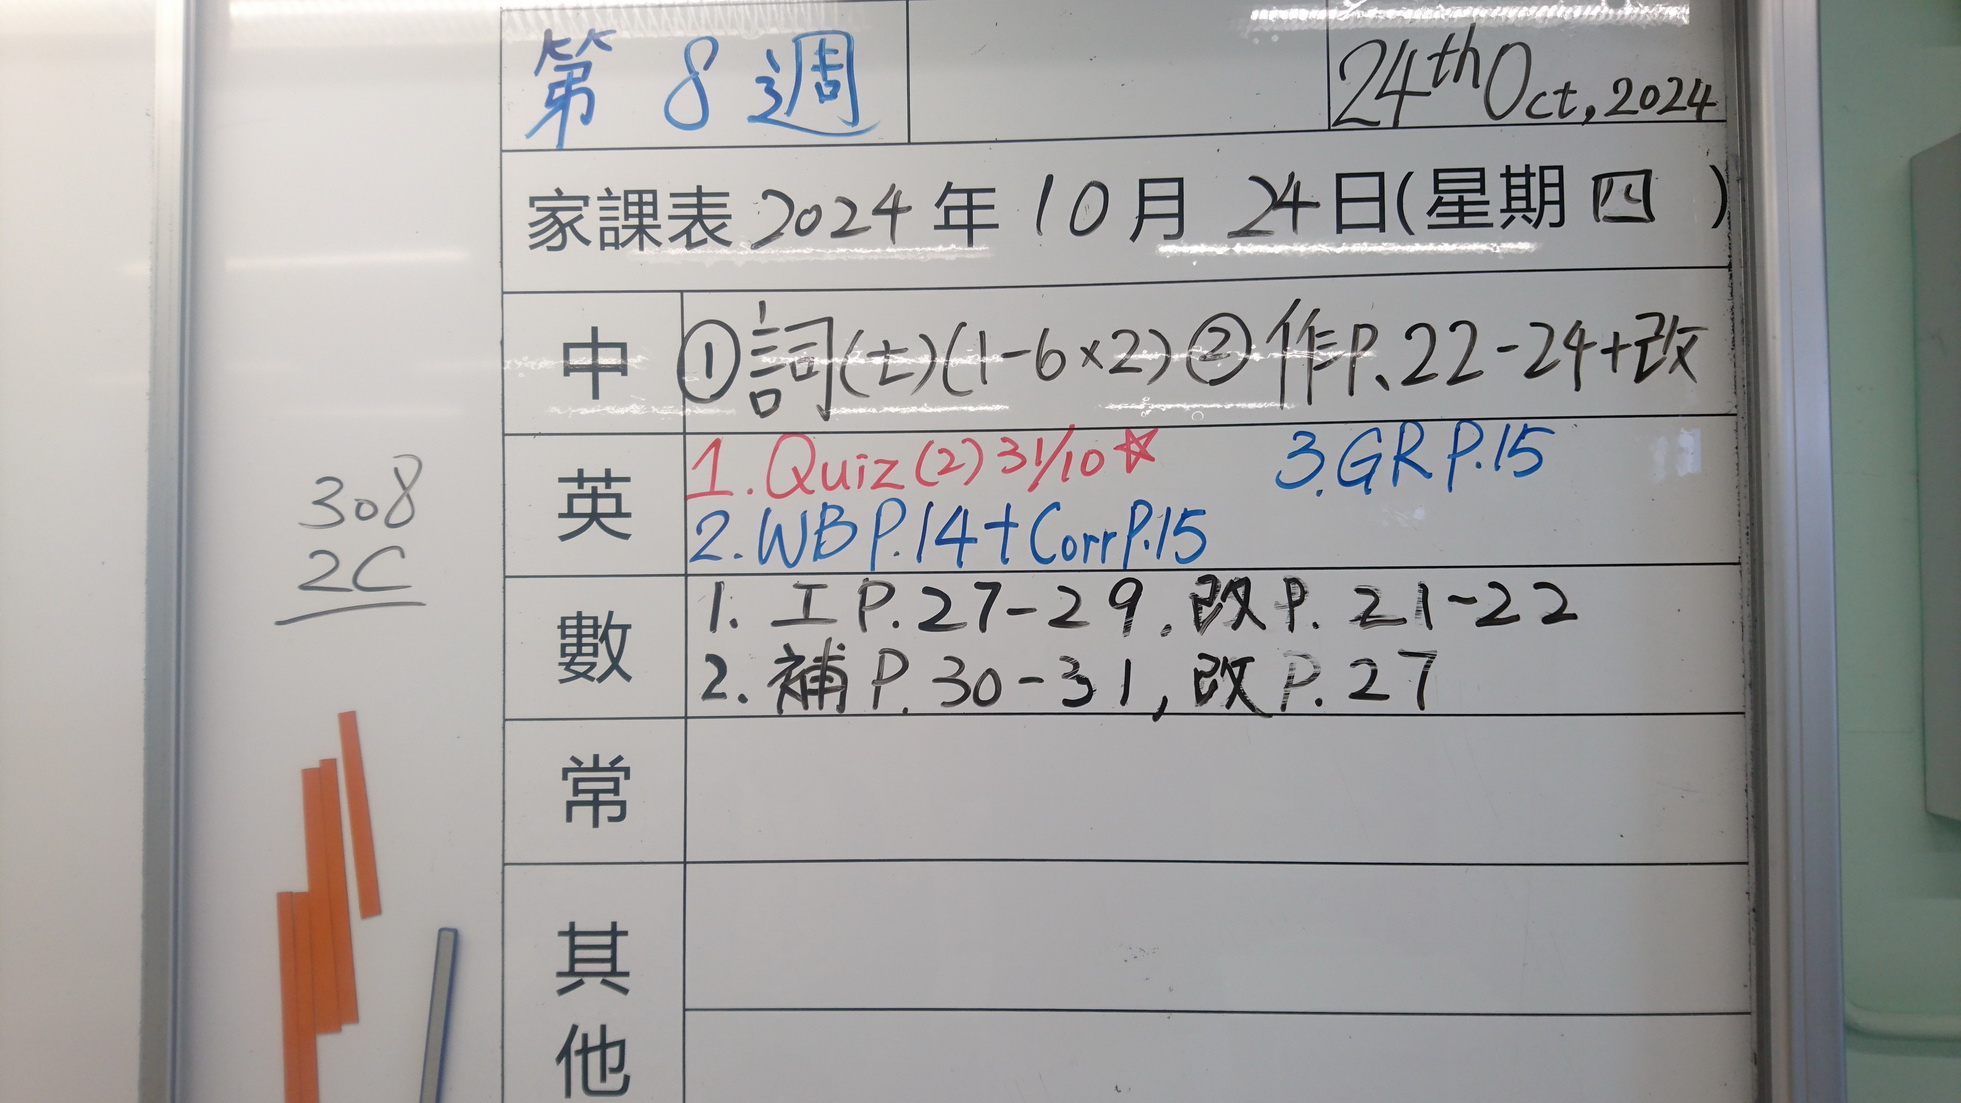 第8週
24th Oct, 2024
家課表 2024年10月24日(星期四)
中 ①詞(七)(1-6×2)②作P.22-24+改
英 1. Quiz(2)31/10☆ 3.GR P.15
2. WB P.14+Corr P.15
數 1. 工P.27-29.改P.21-22
2. 補P.30-31,改P.27
常
其他
308
2C